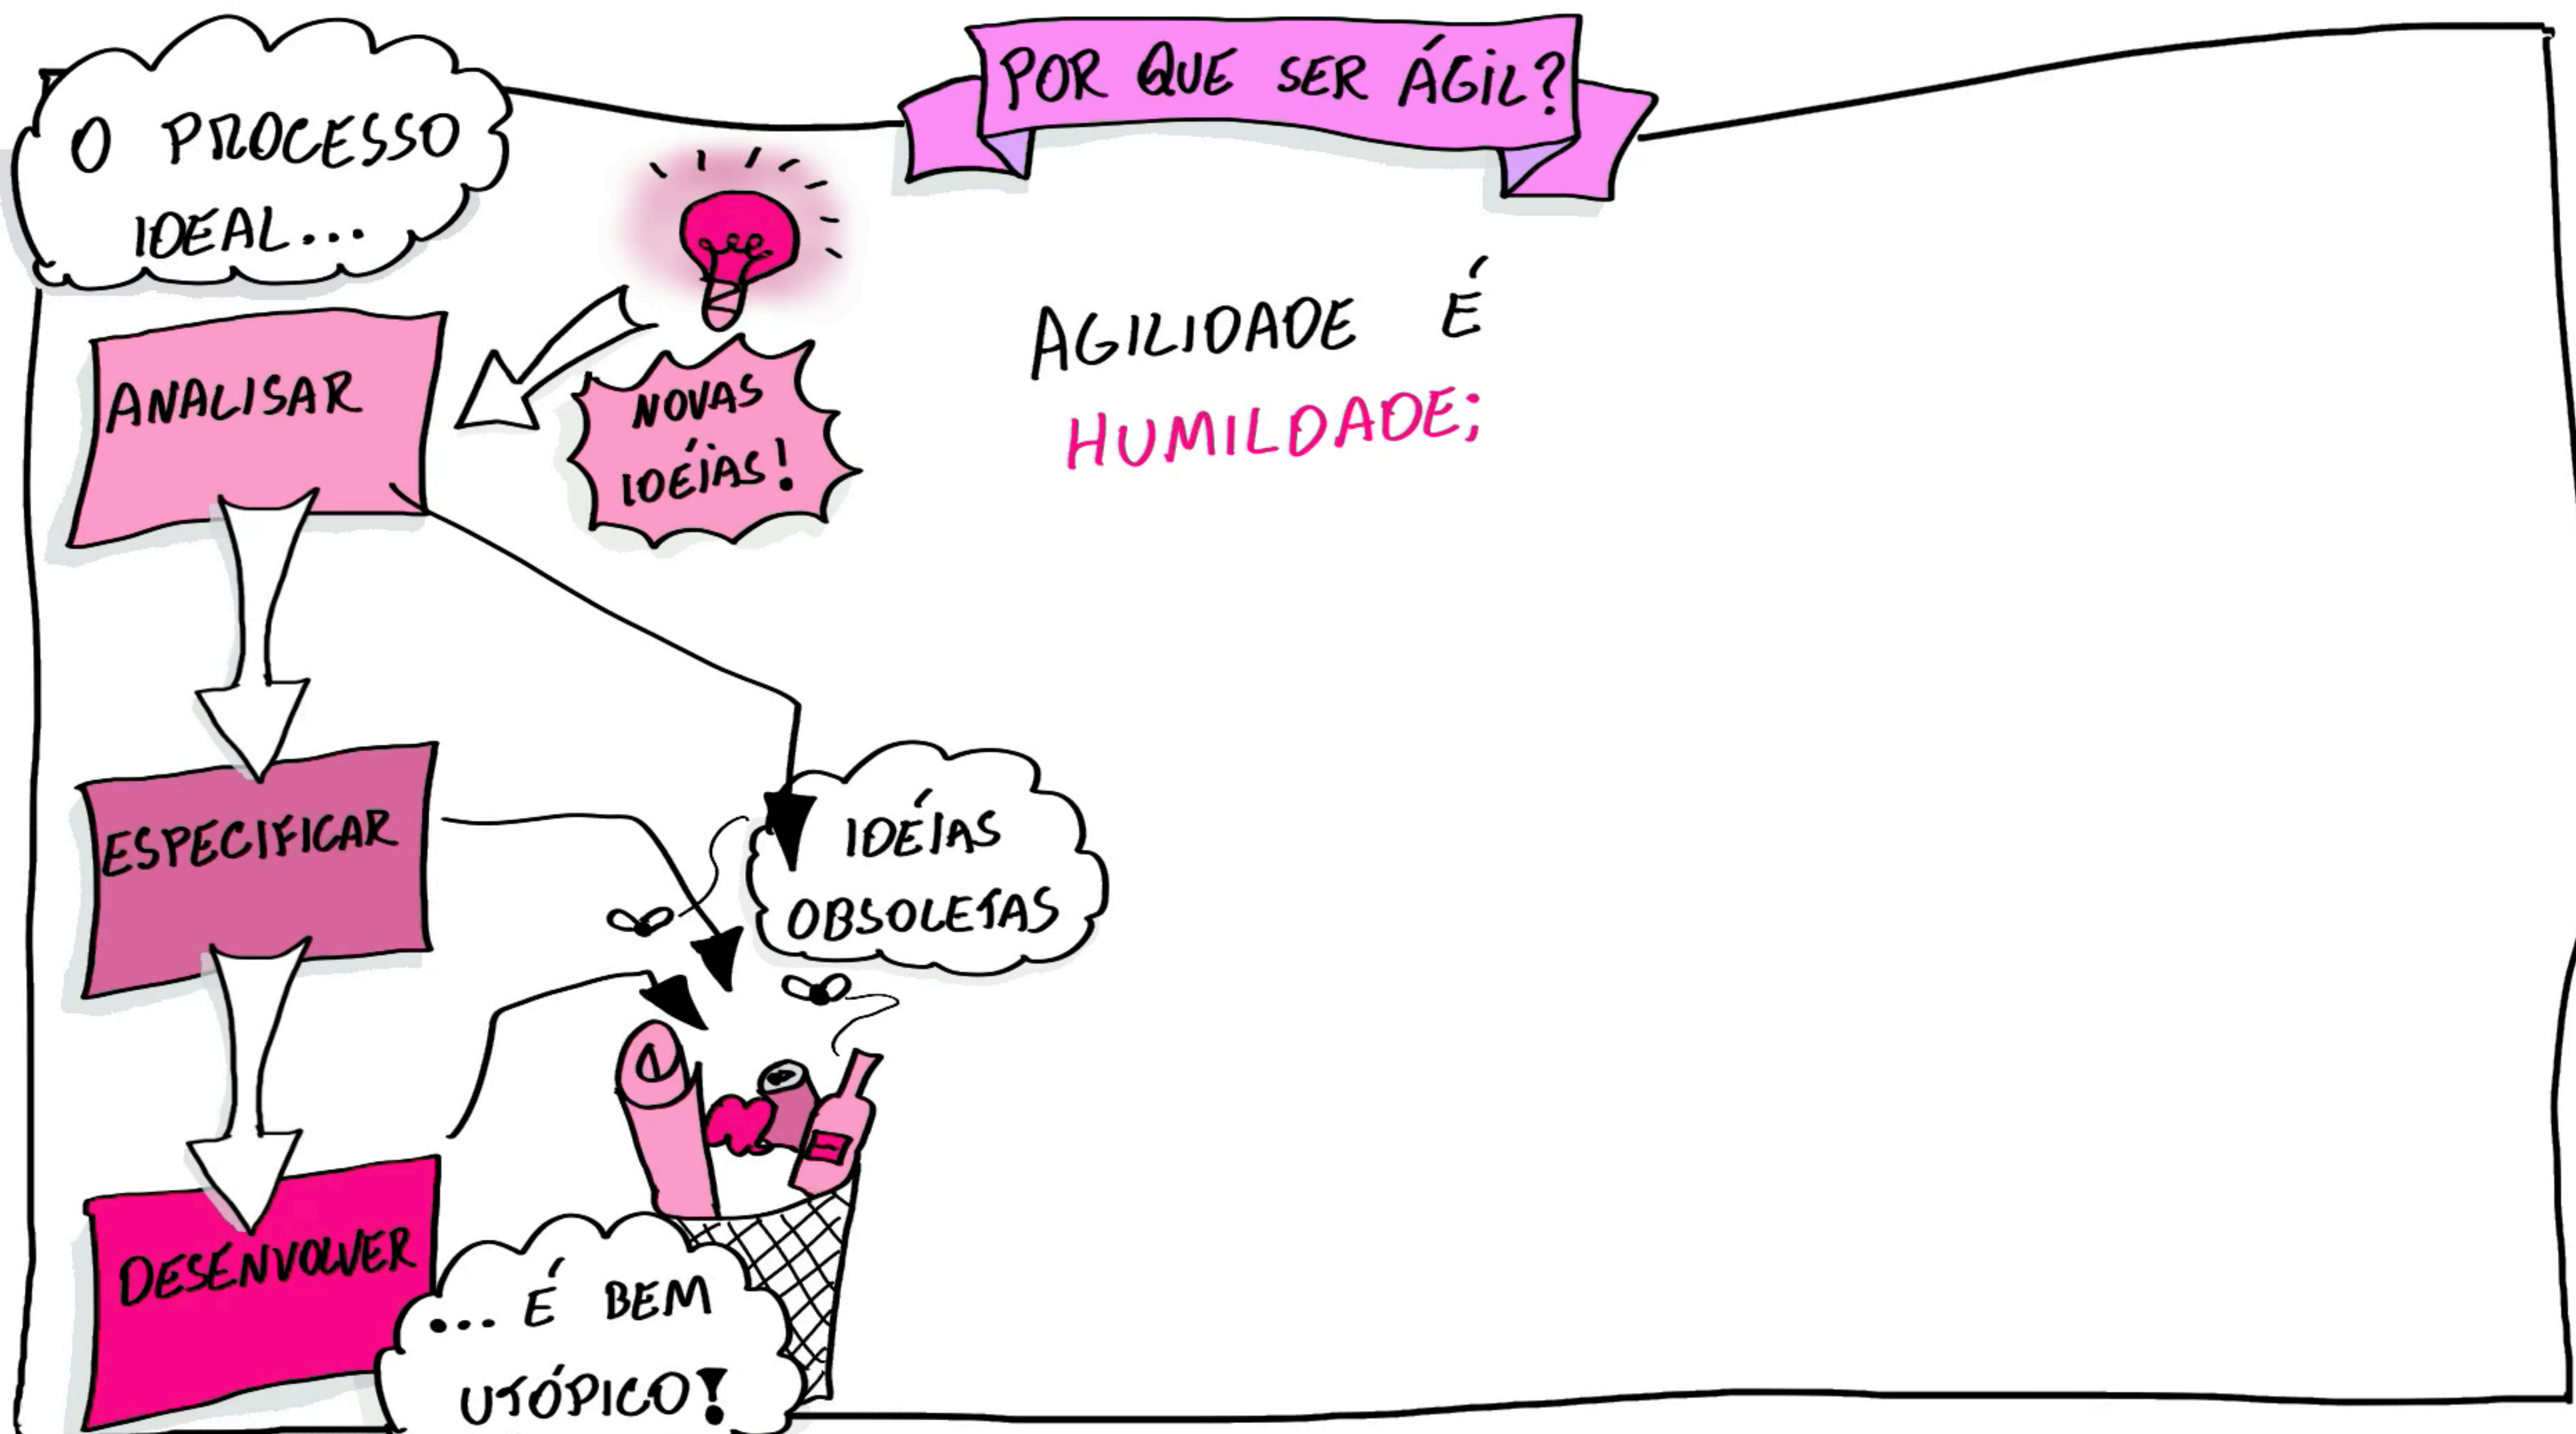 POR QUE SER ÁGIL?
O PROCESSO
IDEAL...
NOVAS
IDÉIAS!
ANALISAR
ESPECIFICAR
DESENVOLVER
IDÉIAS
OBSOLETAS
... É BEM
UTÓPICO!
AGILIDADE É
HUMILDADE;